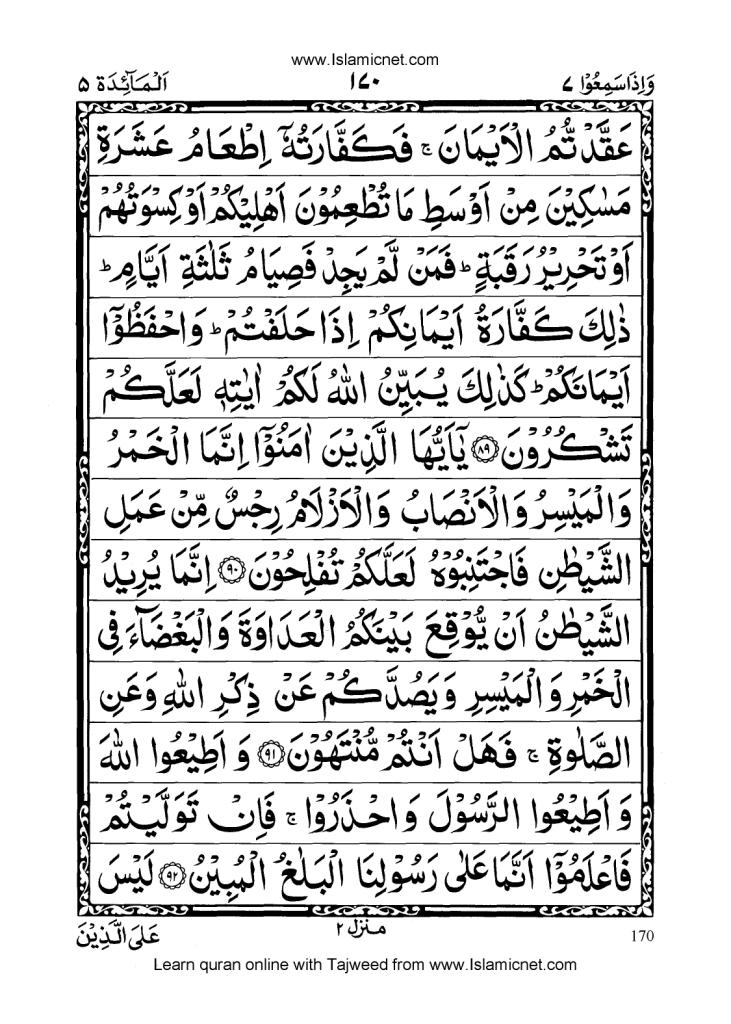 www.Islamicnet.com
وَاِذَاسَمِعُوْا ٧
١٧٠
اَلْمَآئِدَة ٥
عَقَّدْتُّمُ الْاَيْمَانَ ۚ فَكَفَّارَتُهٗۤ اِطْعَامُ عَشَرَةِ
مَسٰكِيْنَ مِنْ اَوْسَطِ مَا تُطْعِمُوْنَ اَهْلِيْكُمْ اَوْ كِسْوَتُهُمْ
اَوْ تَحْرِيْرُ رَقَبَةٍ ؕ فَمَنْ لَّمْ يَجِدْ فَصِيَامُ ثَلٰثَةِ اَيَّامٍ ؕ
ذٰلِكَ كَفَّارَةُ اَيْمَانِكُمْ اِذَا حَلَفْتُمْ ؕ وَاحْفَظُوْۤا
اَيْمَانَكُمْ ؕ كَذٰلِكَ يُبَيِّنُ اللّٰهُ لَكُمْ اٰيٰتِهٖ لَعَلَّكُمْ
تَشْكُرُوْنَ ۝٨٩ يٰۤاَيُّهَا الَّذِيْنَ اٰمَنُوْۤا اِنَّمَا الْخَمْرُ
وَالْمَيْسِرُ وَالْاَنْصَابُ وَالْاَزْلَامُ رِجْسٌ مِّنْ عَمَلِ
الشَّيْطٰنِ فَاجْتَنِبُوْهُ لَعَلَّكُمْ تُفْلِحُوْنَ ۝٩٠ اِنَّمَا يُرِيْدُ
الشَّيْطٰنُ اَنْ يُّوْقِعَ بَيْنَكُمُ الْعَدَاوَةَ وَالْبَغْضَآءَ فِى
الْخَمْرِ وَالْمَيْسِرِ وَيَصُدَّكُمْ عَنْ ذِكْرِ اللّٰهِ وَعَنِ
الصَّلٰوةِ ۚ فَهَلْ اَنْتُمْ مُّنْتَهُوْنَ ۝٩١ وَ اَطِيْعُوا اللّٰهَ
وَ اَطِيْعُوا الرَّسُوْلَ وَ احْذَرُوْا ۚ فَاِنْ تَوَلَّيْتُمْ
فَاعْلَمُوْۤا اَنَّمَا عَلٰى رَسُوْلِنَا الْبَلٰغُ الْمُبِيْنُ ۝٩٢ لَيْسَ
عَلَى الَّذِيْنَ
منزل ٢
170
Learn quran online with Tajweed from www.Islamicnet.com